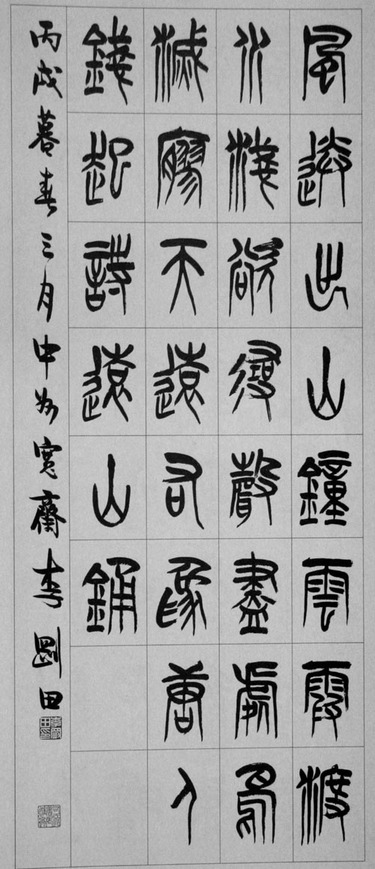 風送出山鐘雲霞渡
水淺欲尋聲盡處鳥
滅寥天遠右爲唐人
錢起詩遠山銿
丙戌暮春三月中州寬齋李剛田